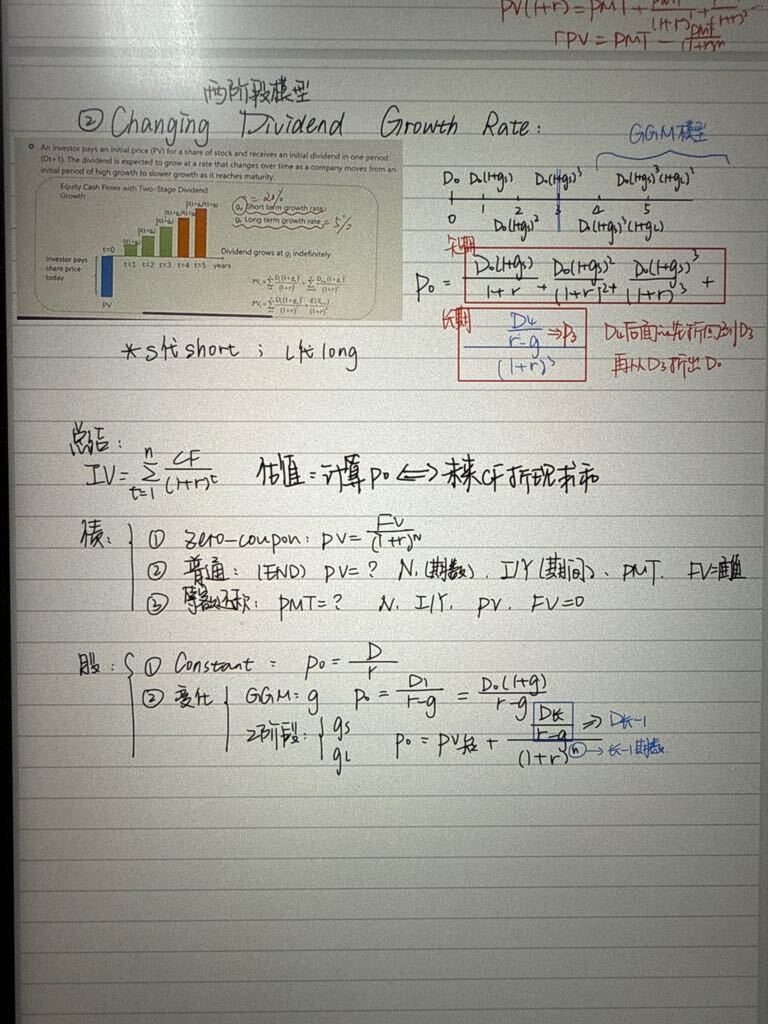 PV(1+r) = PMT +
rPV = PMT -
两阶段模型
② Changing Dividend Growth Rate:
An investor pays an initial price (PV) for a share of stock and receives an initial dividend in one period
(Dt+1). The dividend is expected to grow at a rate that changes over time as a company moves from an
initial period of high growth to slower growth as it reaches maturity.
Equity Cash Flows with Two-Stage Dividend
Growth
gs Short term growth rate = 20%
gL Long term growth rate = 5%
t=0
Investor pays
share price
today
Dividend grows at gl indefinitely
t=1 t=2 t=3 t=4 t=5 years
PV
GGM模型
D0 D0(1+gs) D0(1+gs)³ D0(1+gs)³(1+gL)²
0 1 2 3 4 5
D0(1+gs)² D0(1+gs)³(1+gL)
短期
P0 = D0(1+gs)/1+r + D0(1+gs)²/(1+r)² + D0(1+gs)³/(1+r)³ +
长期
D4/r-g ⇒ P3
(1+r)³
D4后面 D3
再从D3折出D0
*S代short ; L代long
总结:
IV = n∑t=1 CF/(1+r)^t 估值=计算P0 ⟺ 未来CF折现求和
债: ① zero-coupon: PV = FV/(1+r)^N
② 普通: (END) PV=? N(期数)、I/Y(期间)、PMT、FV=面值
③ 等额还款: PMT=? N、I/Y、PV、FV=0
股: ① Constant: P0 = D/r
② 变化 GGM: g P0 = D1/r-g = D0(1+g)/r-g
2阶段: gs gL P0 = PV短 + D长/r-g/(1+r)^n ⇒ D长-1
n → 长-1期数